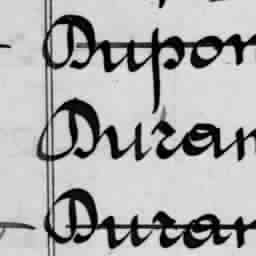 Dupon
Duran
Duran